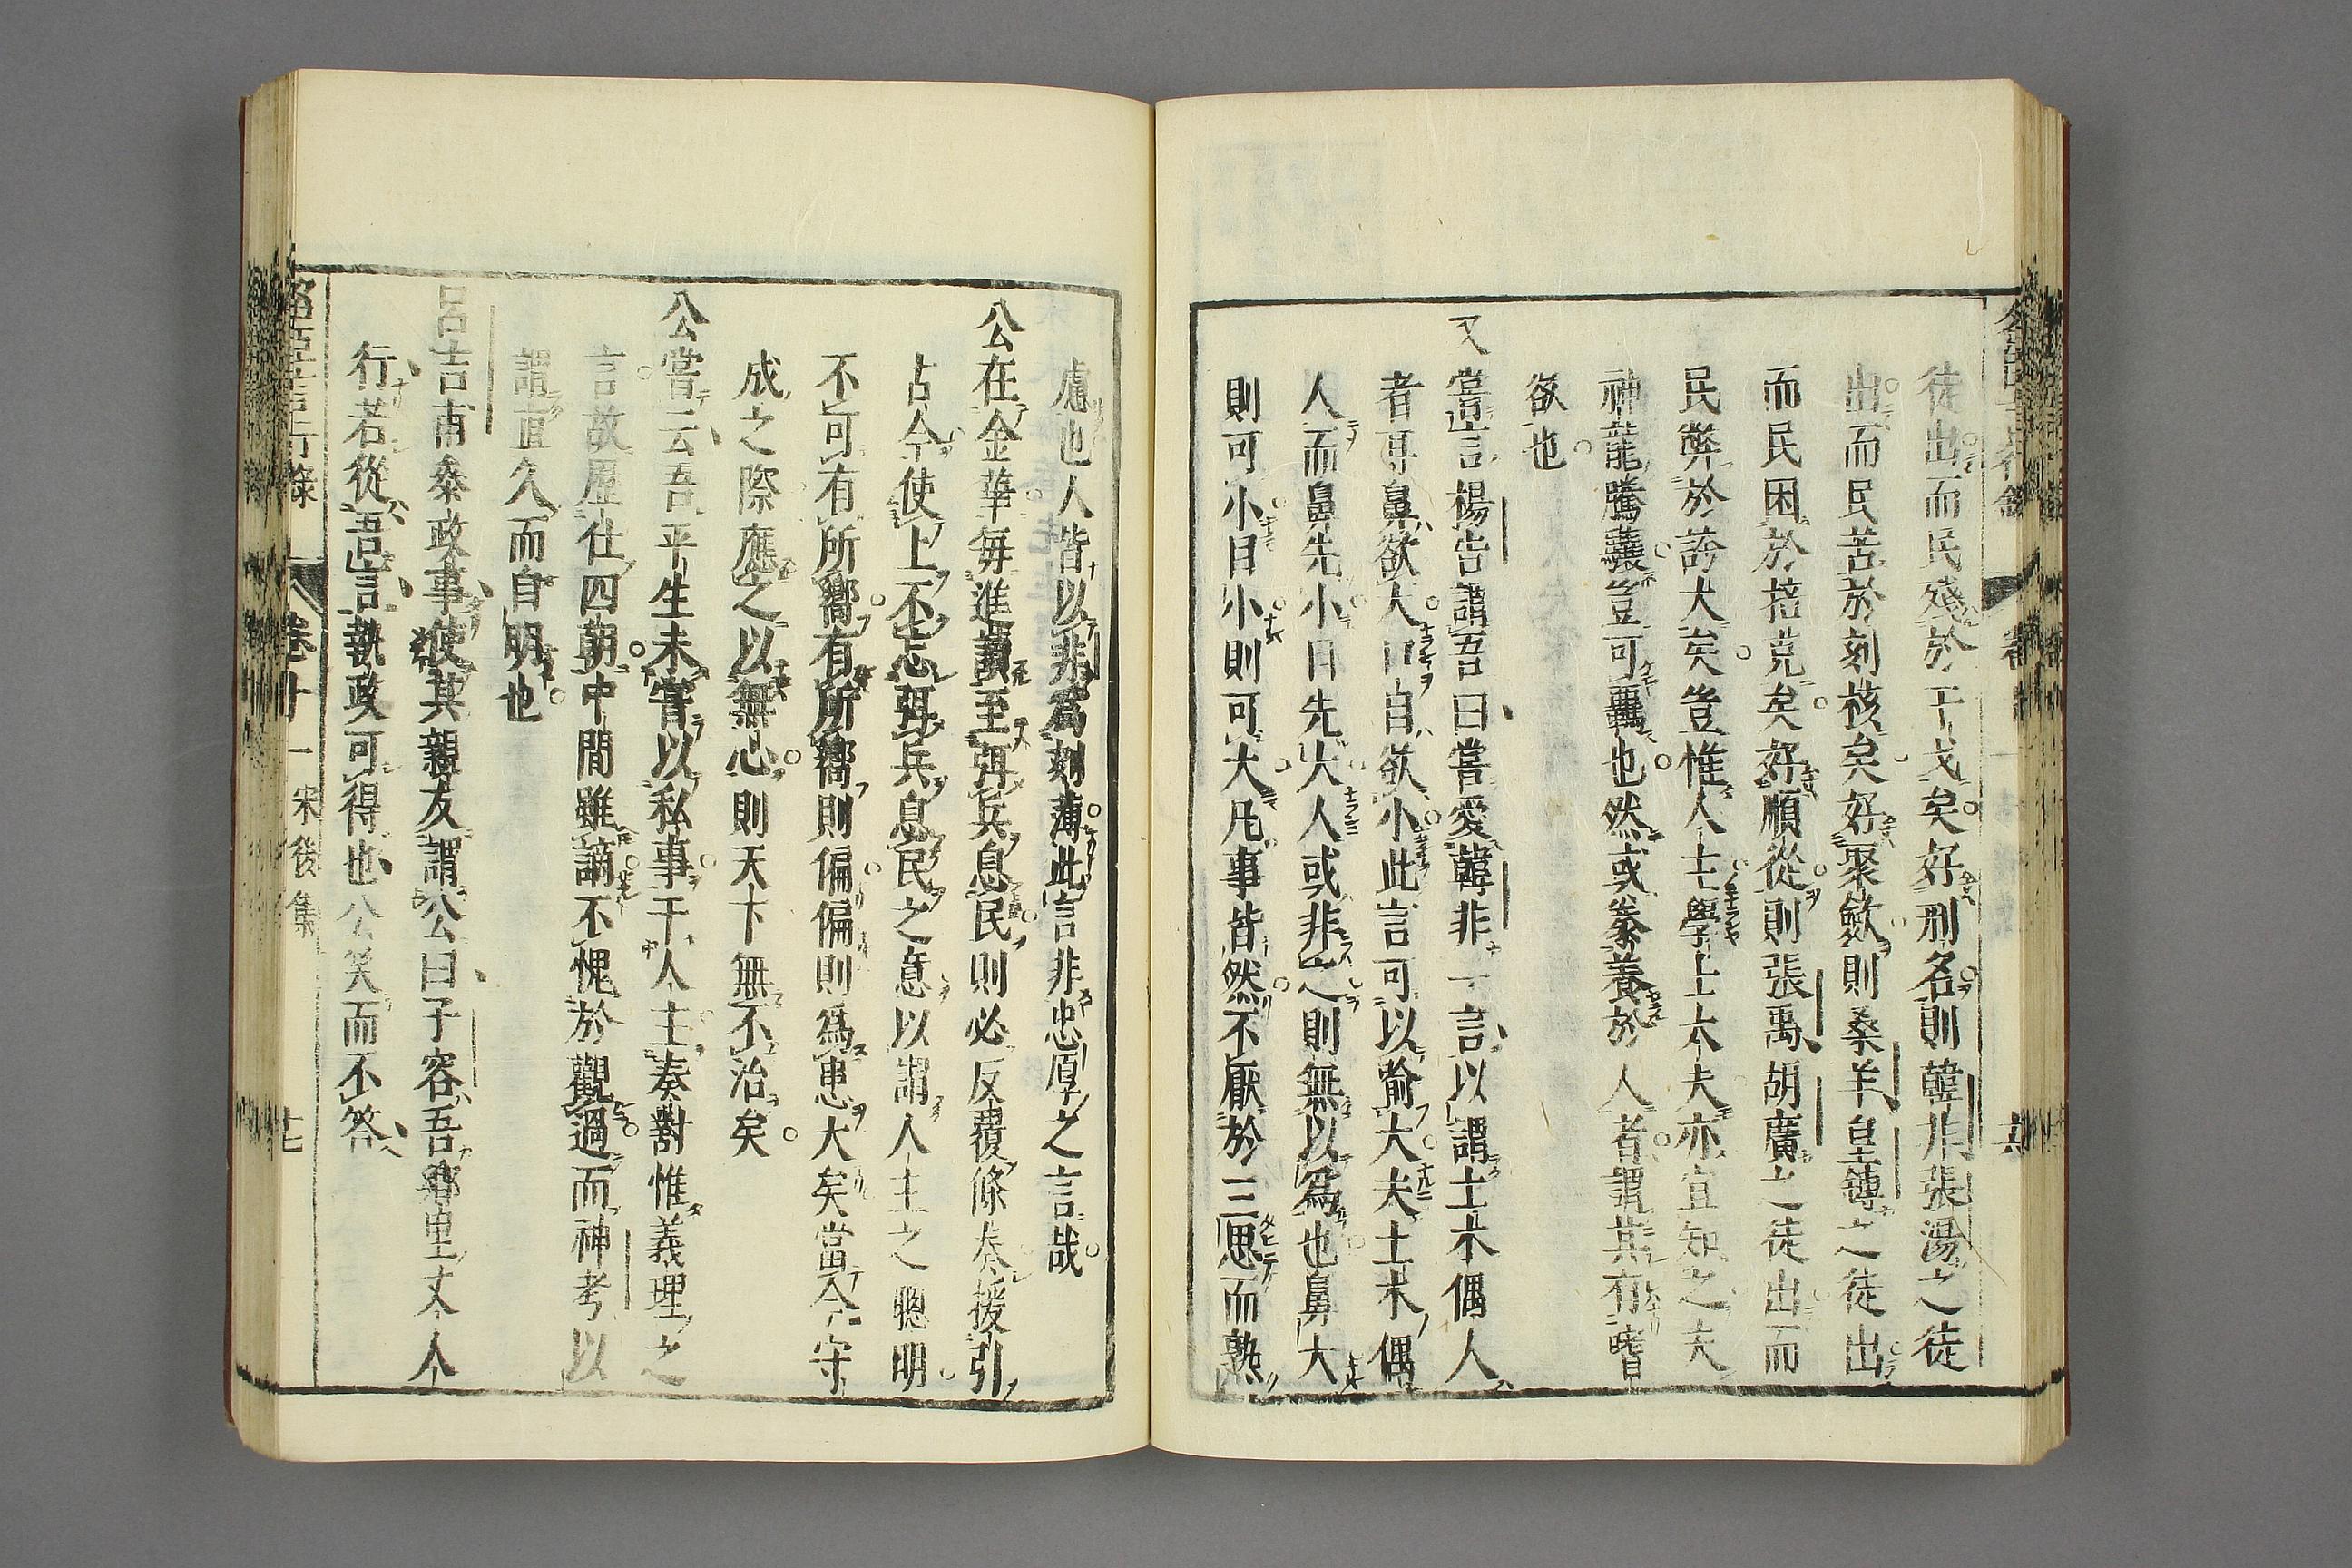 徒出而民殘於干戈矣好刑名則韓非張湯之徒
出而民苦於刻核矣好聚斂則桑羊皇鏄之徒出
而民困於掊克矣好順從則張禹胡廣之徒出而
民弊於誇大矣豈惟人主學士大夫亦宜知之夫
神龍騰驤豈可羈也然或豢養於人者謂其有嗜
欲也
又嘗言楊告謂吾曰嘗愛韓非一言以謂土木偶人
者耳鼻欲大口自欲小此言可以喻大夫土木偶
人而鼻先小目先大人或非之則無以為也鼻大
則可小目小則可大凡事皆然不厭於三思而熟
慮也人皆以非爲刻薄此言非忠厚之言哉
公在金華每進讀至弭兵息民則必反覆條奏援引
古今使上不忘弭兵息民之意以謂人主之聰明
不可有所嚮有所嚮則偏偏則爲患大矣當今守
成之際應之以無心則天下無不治矣
公嘗云吾平生未嘗以私事干人主奏對惟義理之
言故歷仕四朝中間雖謫不愧於觀過而神考以
謂直久而自明也
呂吉甫參政事使其親友謂公曰子容吾鄉里丈人
行若從吾言執政可得也公笑而不答
名臣言行錄 卷十一 宋後集 七